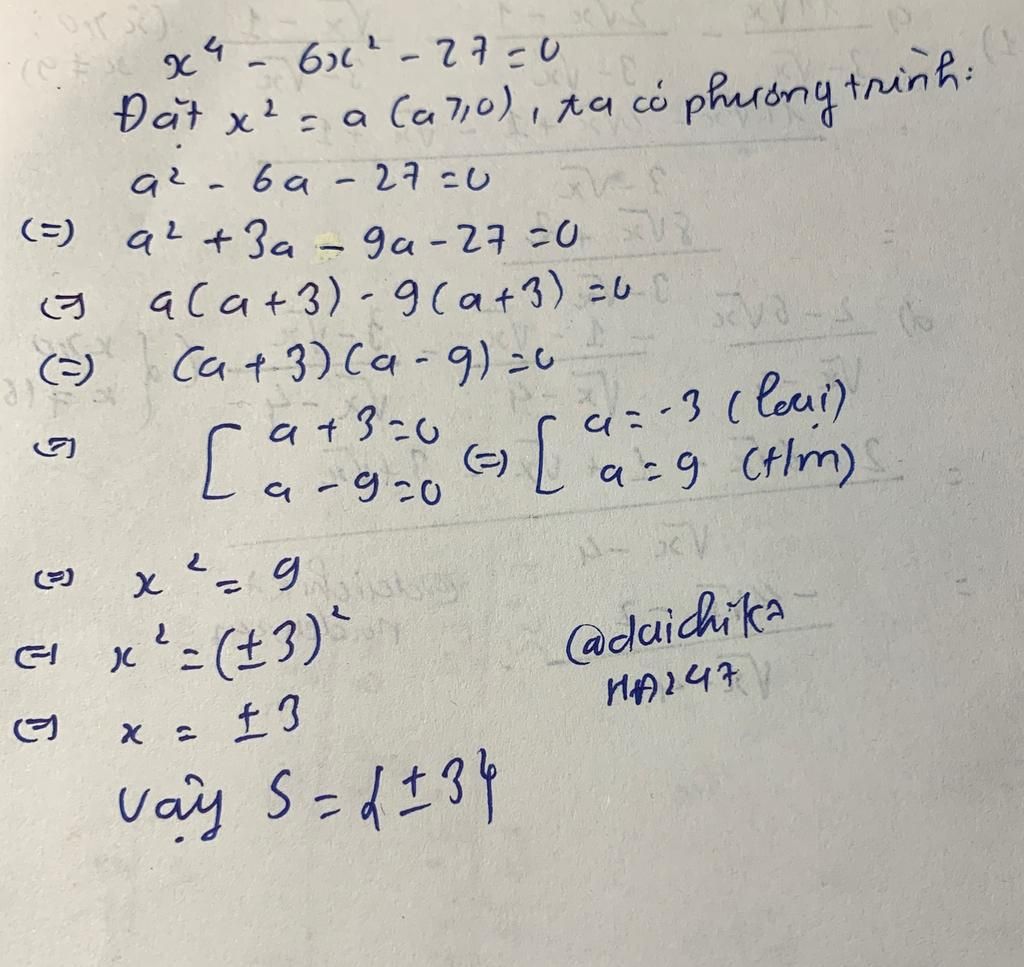 x⁴ - 6x² - 27 = 0
Đặt x² = a (a ≥ 0), ta có phương trình:
a² - 6a - 27 = 0
(=) a² + 3a - 9a - 27 = 0
(=) a(a + 3) - 9(a + 3) = 0
(=) (a + 3)(a - 9) = 0
(=) [ a + 3 = 0 (=) [ a = -3 (loại)
a - 9 = 0 a = 9 (t/m)
(=) x² = 9
(=) x² = (±3)²
(=) x = ±3
Vậy S = {±3}
@daichika
HA247